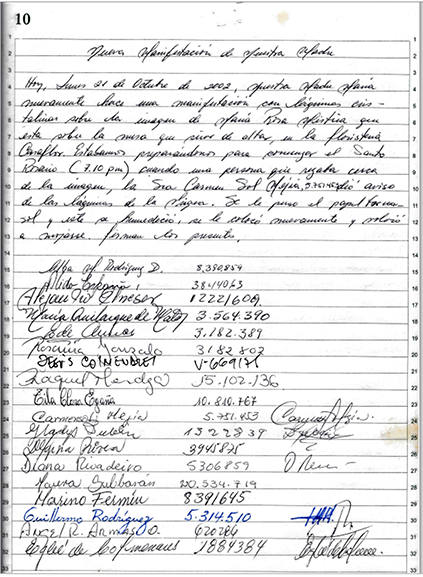 10
Nueva Manifestación de Nuestra Madre
Hoy, Lunes 21 de Octubre de 2002, Nuestra Madre María
nuevamente hace una manifestación con lágrimas cris-
talinas sobre la imagen de María Rosa Mística que
esta sobre la mesa que sirve de altar, en la floristería
Caraflor. Estabamos preparándonos para comenzar el Santo
Rosario (7.10 pm) cuando una persona que rezaba cerca
de la imagen, la Sra Carmen Sol Mejia, dió aviso
de las lágrimas de la Virgen. Se le puso el papel
sol y este se humedeció, se le colocó nuevamente y volvió
a mojarse. Firman los presentes.
Alba M. Rodríguez D. 8.390.854
3.814.063
Alejandro 1222160
María de 3.564.390
3.182.389
Gonzalo 3182802
V-669171
Raquel Mendoza 15.102.136
Elba Elena España 10.810.767
Carmen Mejia 5.751.453
Gladys 1322839
Rivera 3945825
Diana Rivadeiro 5306859
Maura Subbarán 20.534.719
Marino Fermín 8391645
Guillermo Rodríguez 5.314.510
Angel R. Armas O. 620286
Eglié de Colmenares 1884384